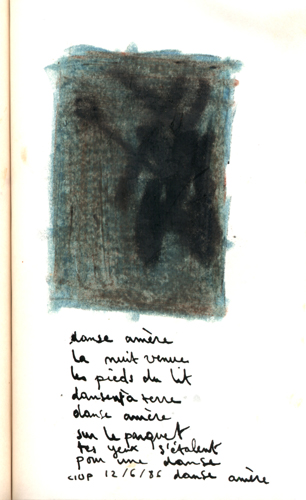 danse amère
la nuit venue
les pieds du lit
dansent à terre
danse amère
sur le parquet
tes yeux s'étalent
pour une danse
CIUP 12/6/86 danse amère